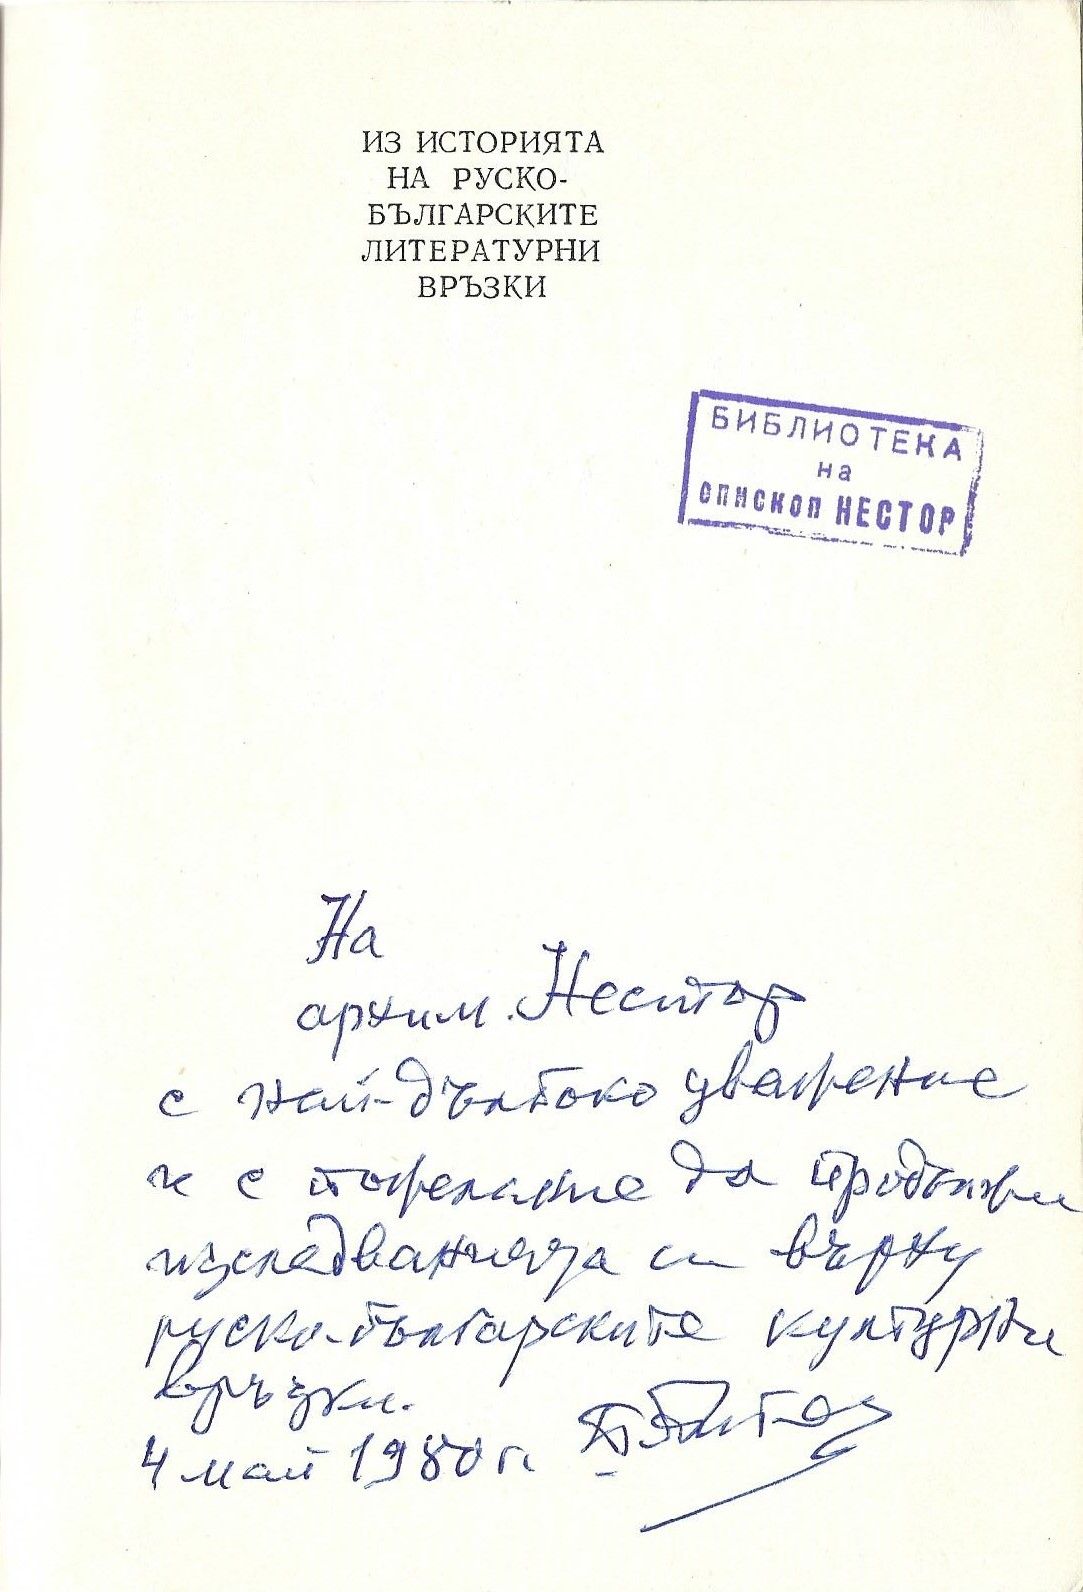 ИЗ ИСТОРИЯТА
НА РУСКО-
БЪЛГАРСКИТЕ
ЛИТЕРАТУРНИ
ВРЪЗКИ
БИБЛИОТЕКА
на
епископ НЕСТОР
На
архим. Нестор
с най-дълбоко уважение
и с пожелание да продължи
изследванията си върху
руско-българските културни
връзки.
4 май 1980 г.